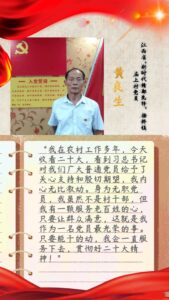 江西省“新时代赣鄱先锋”、梅林镇
庙上村党员
黄良生
入党誓词
“我在农村工作多年，今天
收看二十大，看到习总书记
对我们广大普通党员给予了
关心支持和殷切期望，我内
心无比激动，身为光职党
员，我虽然不是村干部，但
我有一颗服务老百姓的心，
只要让群众满意，这就是我
作为一名党员最光荣的事。
只要能干的动，我会一直服
务下去，贯彻好二十大精
神！”